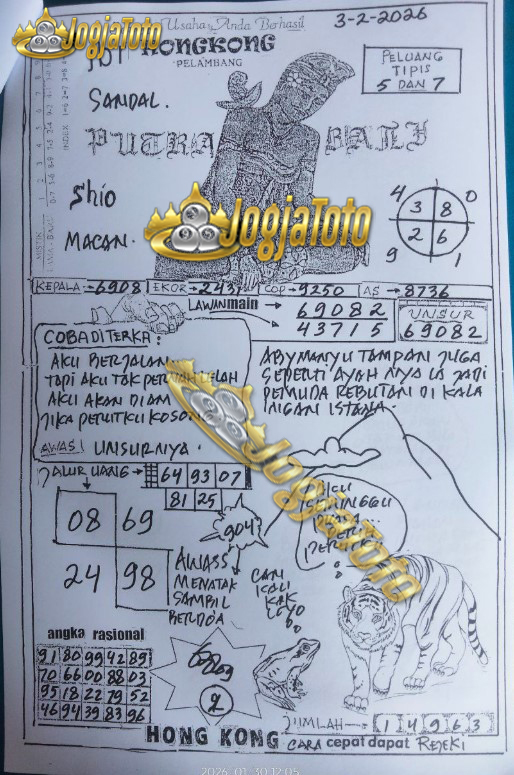 Usaha Anda Berhasil
3-2-2026
JogjaToto
HONGKONG
PELAMBANG
PELUANG
TIPIS
5 DAN 7
SANDAL.
PUTRA BALI
Shio
MACAN.
4 3 8 0
2 6
9 1
JogjaToto
KEPALA→6908 EKOR→2437 COP→9250 AS→8736
LAWAN main
69082
43715
UNSUR
69082
COBA DI TERKA:
AKU BERJALAN
TAPI AKU TAK PERNAH LELAH
AKU AKAN DIAM
JIKA PERUTKU KOSONG
AWAS! UNSURNYA.
ABYMANYU TAMPAN JUGA
SEPERTI AYAH NYA IA JADI
PEMUDA REBUTAN DI KALA
NGAN ISTANA.
JALUR UANG→ 64 93 07
81 25
JogjaToto
08 69
24 98
904
AKU
AWASS
MENATAK
SAMBIL
BERDOA
CARI
KALI
KAK
angka rasional
91 80 99 42 89
70 66 00 88 03
95 18 22 79 52
46 94 39 83 96
2
JUMLAH→ 1 4 9 6 3
HONG KONG CARA cepat dapat REJEKI
2026-01-30 12:05